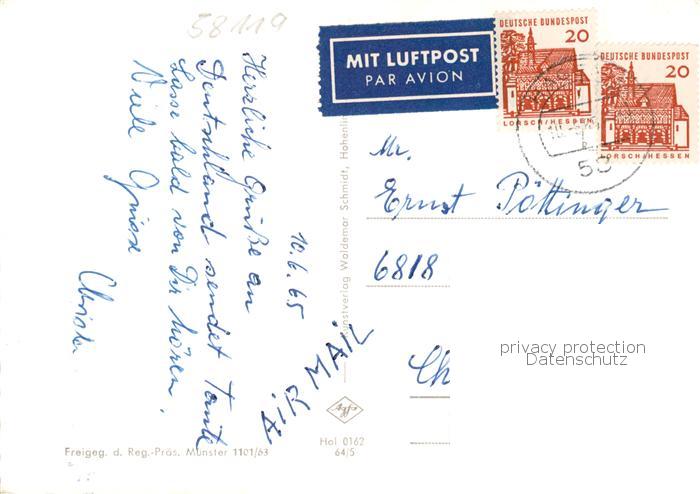 58119
MIT LUFTPOST
PAR AVION
DEUTSCHE BUNDESPOST
20
LORSCH/HESSEN
DEUTSCHE BUNDESPOST
20
LORSCH/HESSEN
53
10.6.65
Herzliche Grüße an
Deutschland sendet Tante
Lasse bald von Dir hören.
Viele Grüsse
Christa
AIR MAIL
Kunstverlag Waldemar Schmidt, Hohenlim
Mr.
Ernst Pöttinger
6818
Ch
privacy protection
Datenschutz
Freigeg. d. Reg.-Präs. Münster 1101/63
Hol 0162
64/5